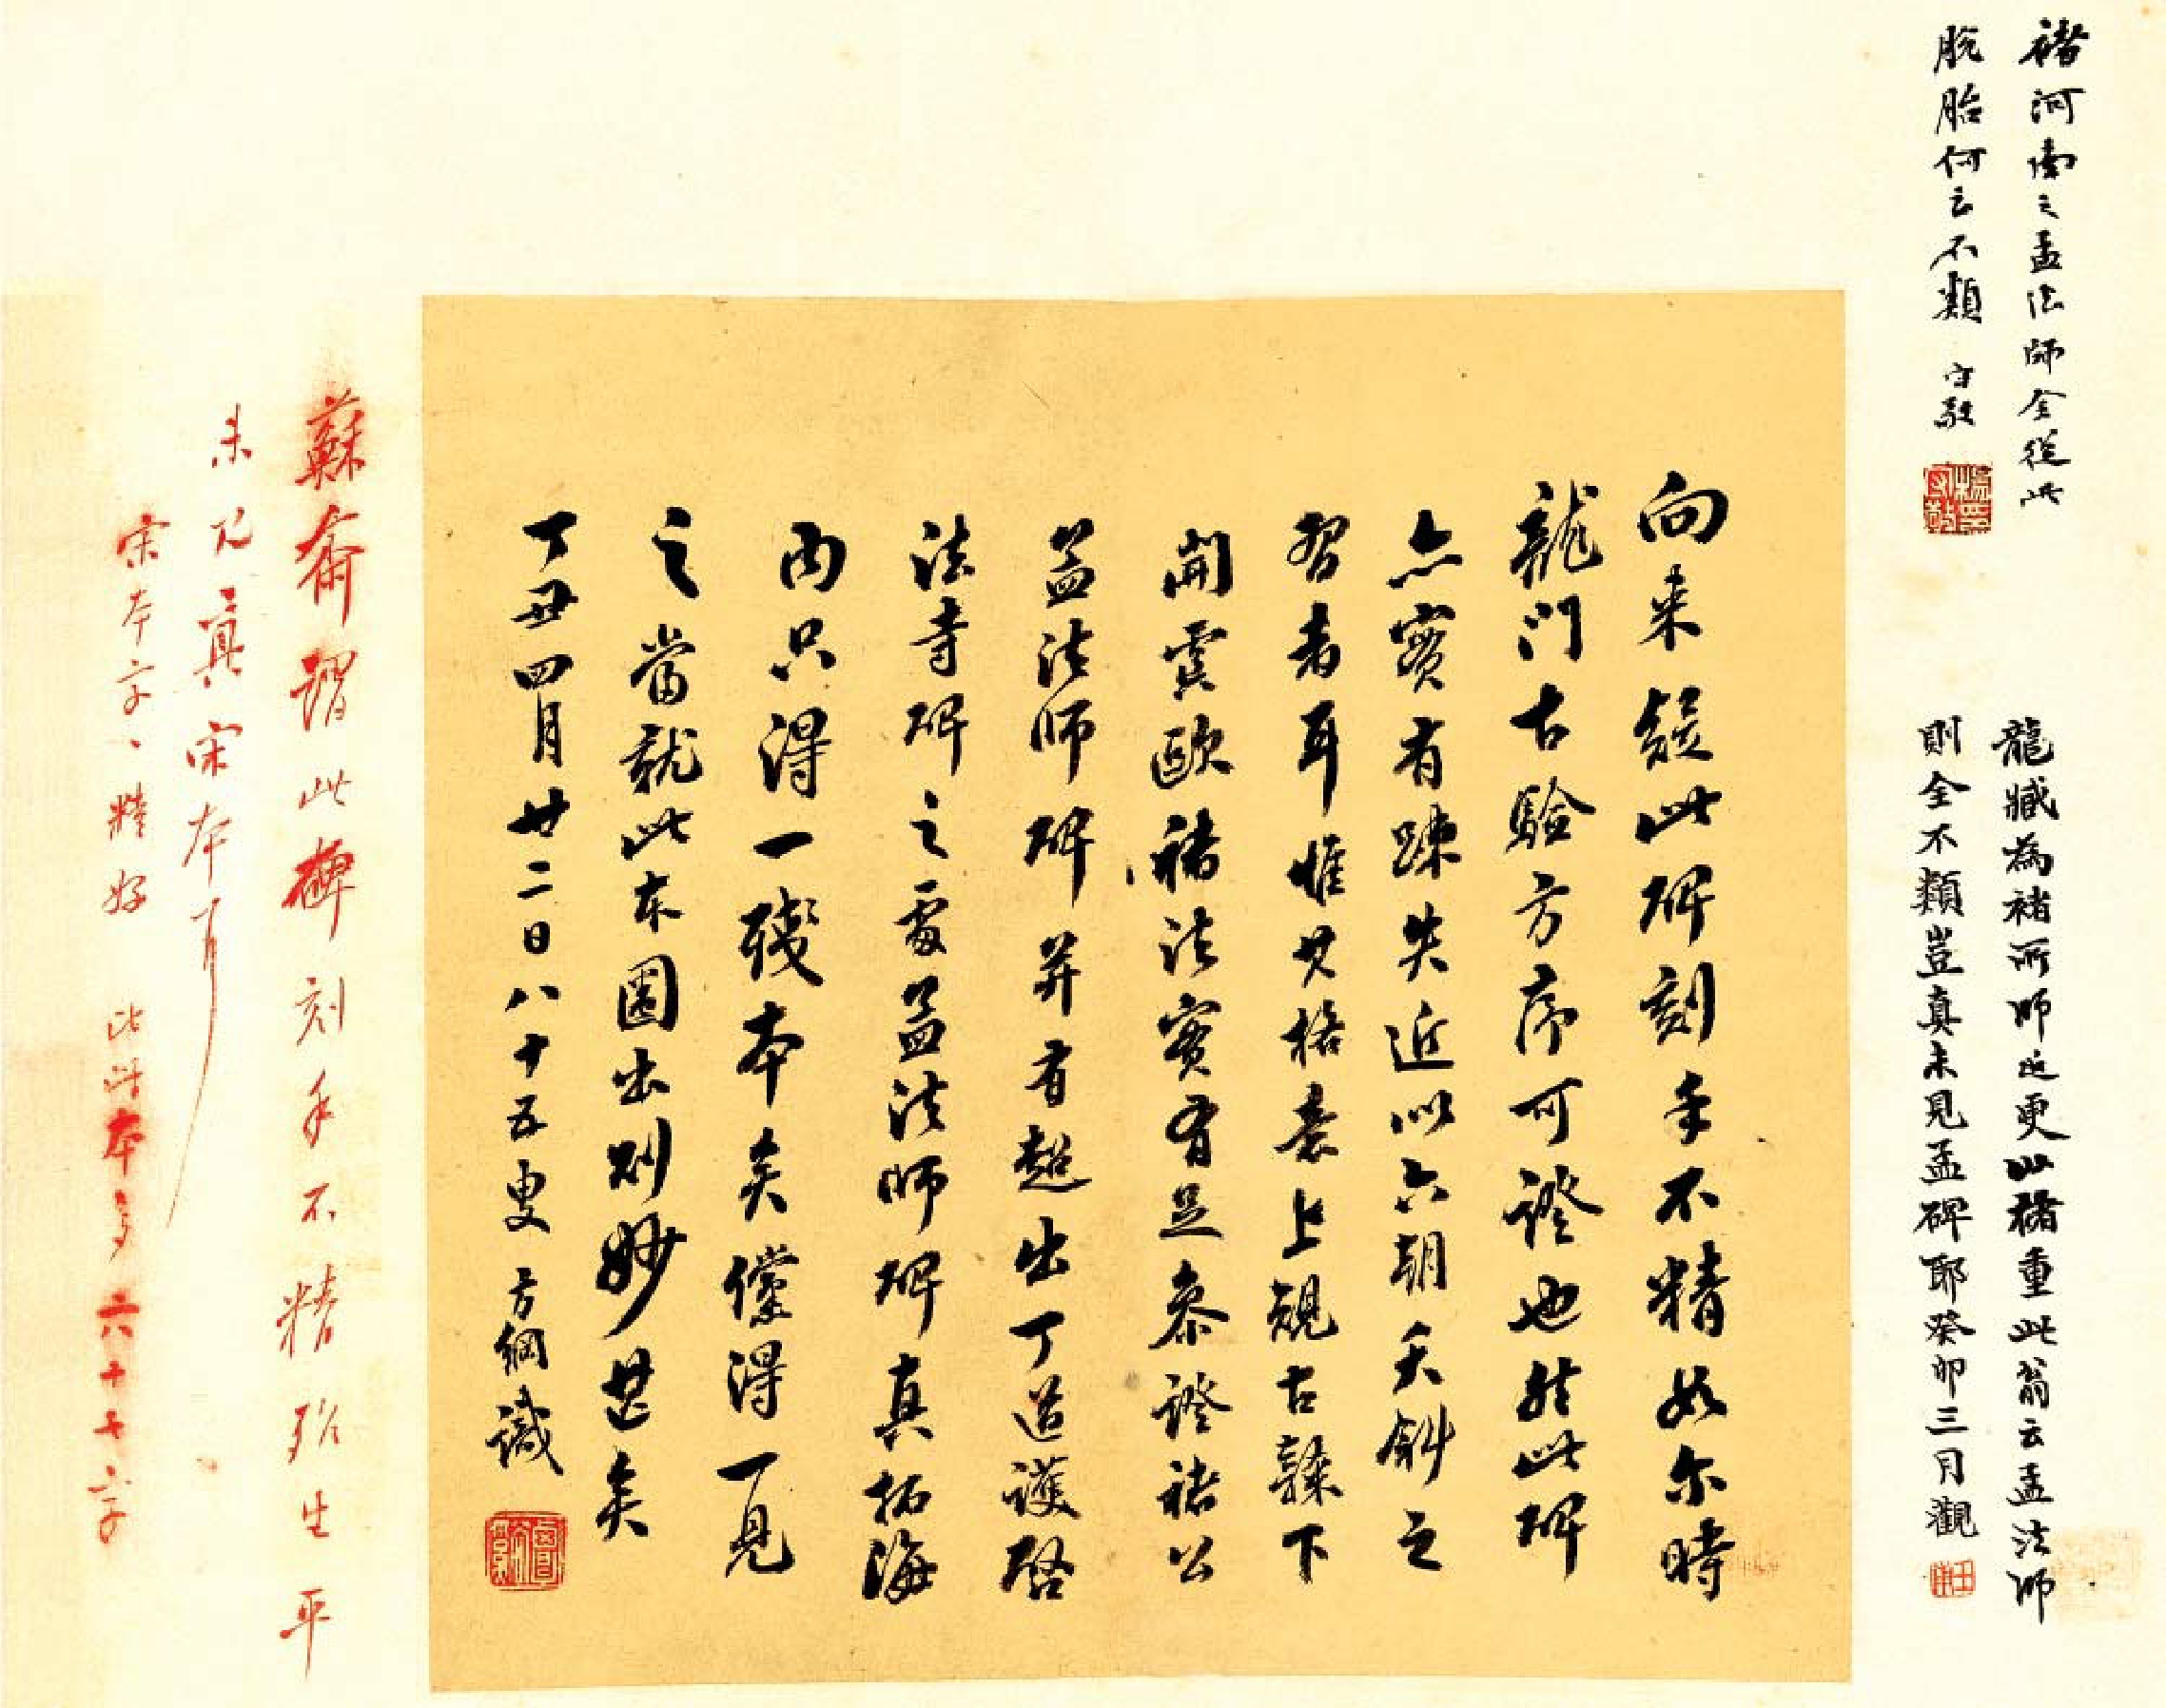 褚河南之孟法師全從此
脫胎何云不類 守敬
龍藏為褚所師近更以褚重此翁云孟法師
則全不類豈真未見孟碑耶癸卯三月觀
向来疑此碑刻手不精如尔時
龍門古驗方序可證也然此碑
亦實有疎失近似六朝夭斜之
習者耳惟其格意上規古隸下
開虞歐褚法實有足黍證褚公
孟法師碑并有超出丁道護啓
法寺碑之處孟法師碑真拓海
內只得一殘本矣儻得一見
之當就此本圈出則妙甚矣
丁丑四月廿二日八十五叟 方綱識
蘇齋謂此碑刻手不精殆生平
未見真宋本耳
宋本字、精好 此潜本多六十七字